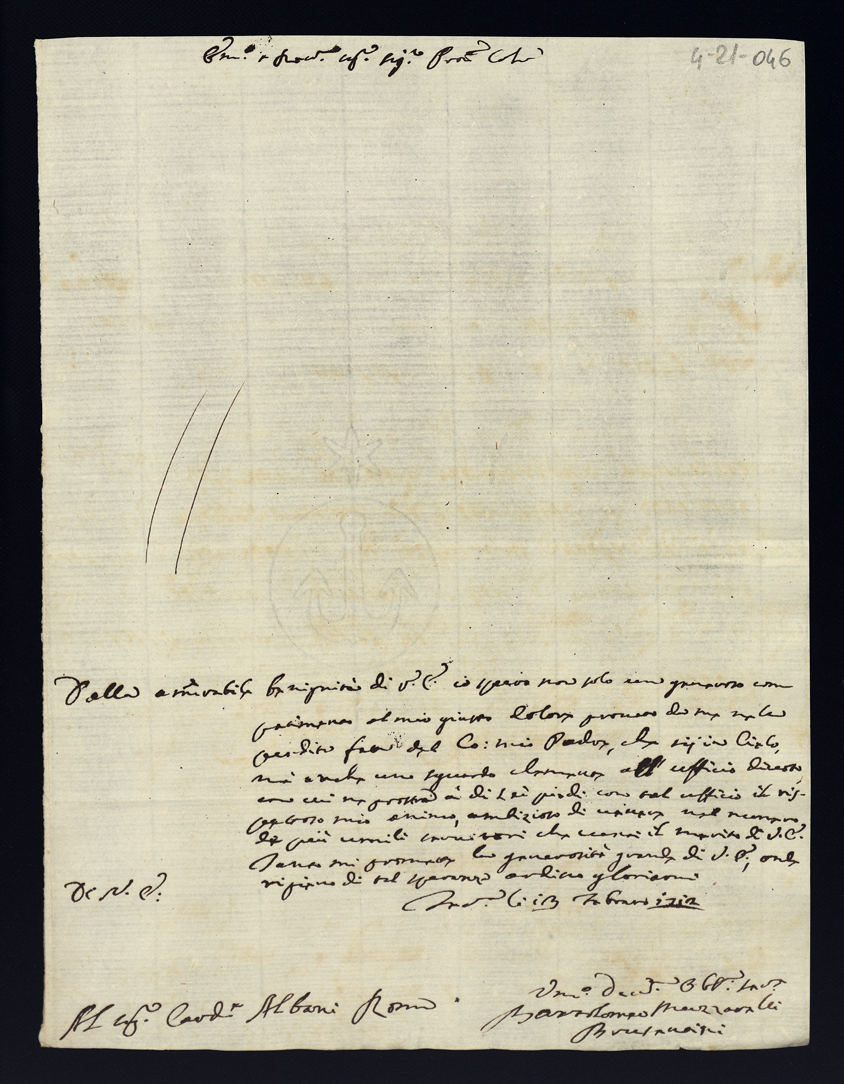 4-21-046
Em.º e Rev.º sig.r sig.r Pron.e Col.mo
Dalla amirabile benignità di V. E. io spero non solo un generoso com
patimento al mio giusto dolore provato da me nella
perdita fatta del Co: mio Padre, che sij in Cielo,
mà anche uno sguardo clemente all ufficio
con cui à di Lei piedi con tal ufficio il ris-
petoso mio animo, ambizioso di nel numero
de più umili servitori che il merito di V. E.
Tanto mi promette la generosità grande di V. E., onde
di tal speranza ardisco gloriarmi
De V. E.
li 13 Febraro 1712
Um.º Dev.º Obl.º Ser.re
Bartolomeo
Al sig.r Card.e Albani Roma